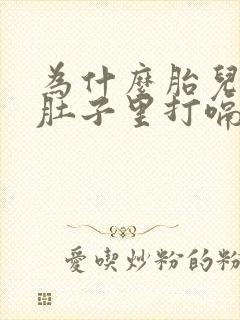 為什麼胎兒
肚子里打嗝
愛喫炒粉的粉